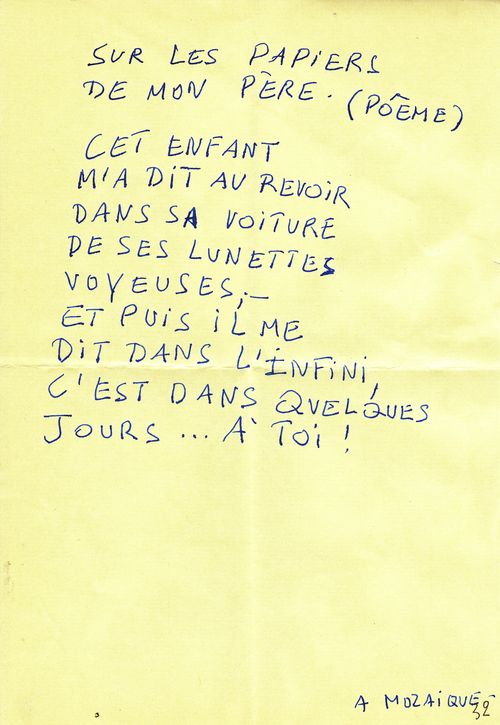 SUR LES PAPIERS
DE MON PÈRE. (PÔEME)
CET ENFANT
M'A DIT AU REVOIR
DANS SA VOITURE
DE SES LUNETTES
VOYEUSES,-
ET PUIS IL ME
DIT DANS L'INFINI,
C'EST DANS QUELQUES
JOURS ... À TOI !
A MOZAIQUE-
32